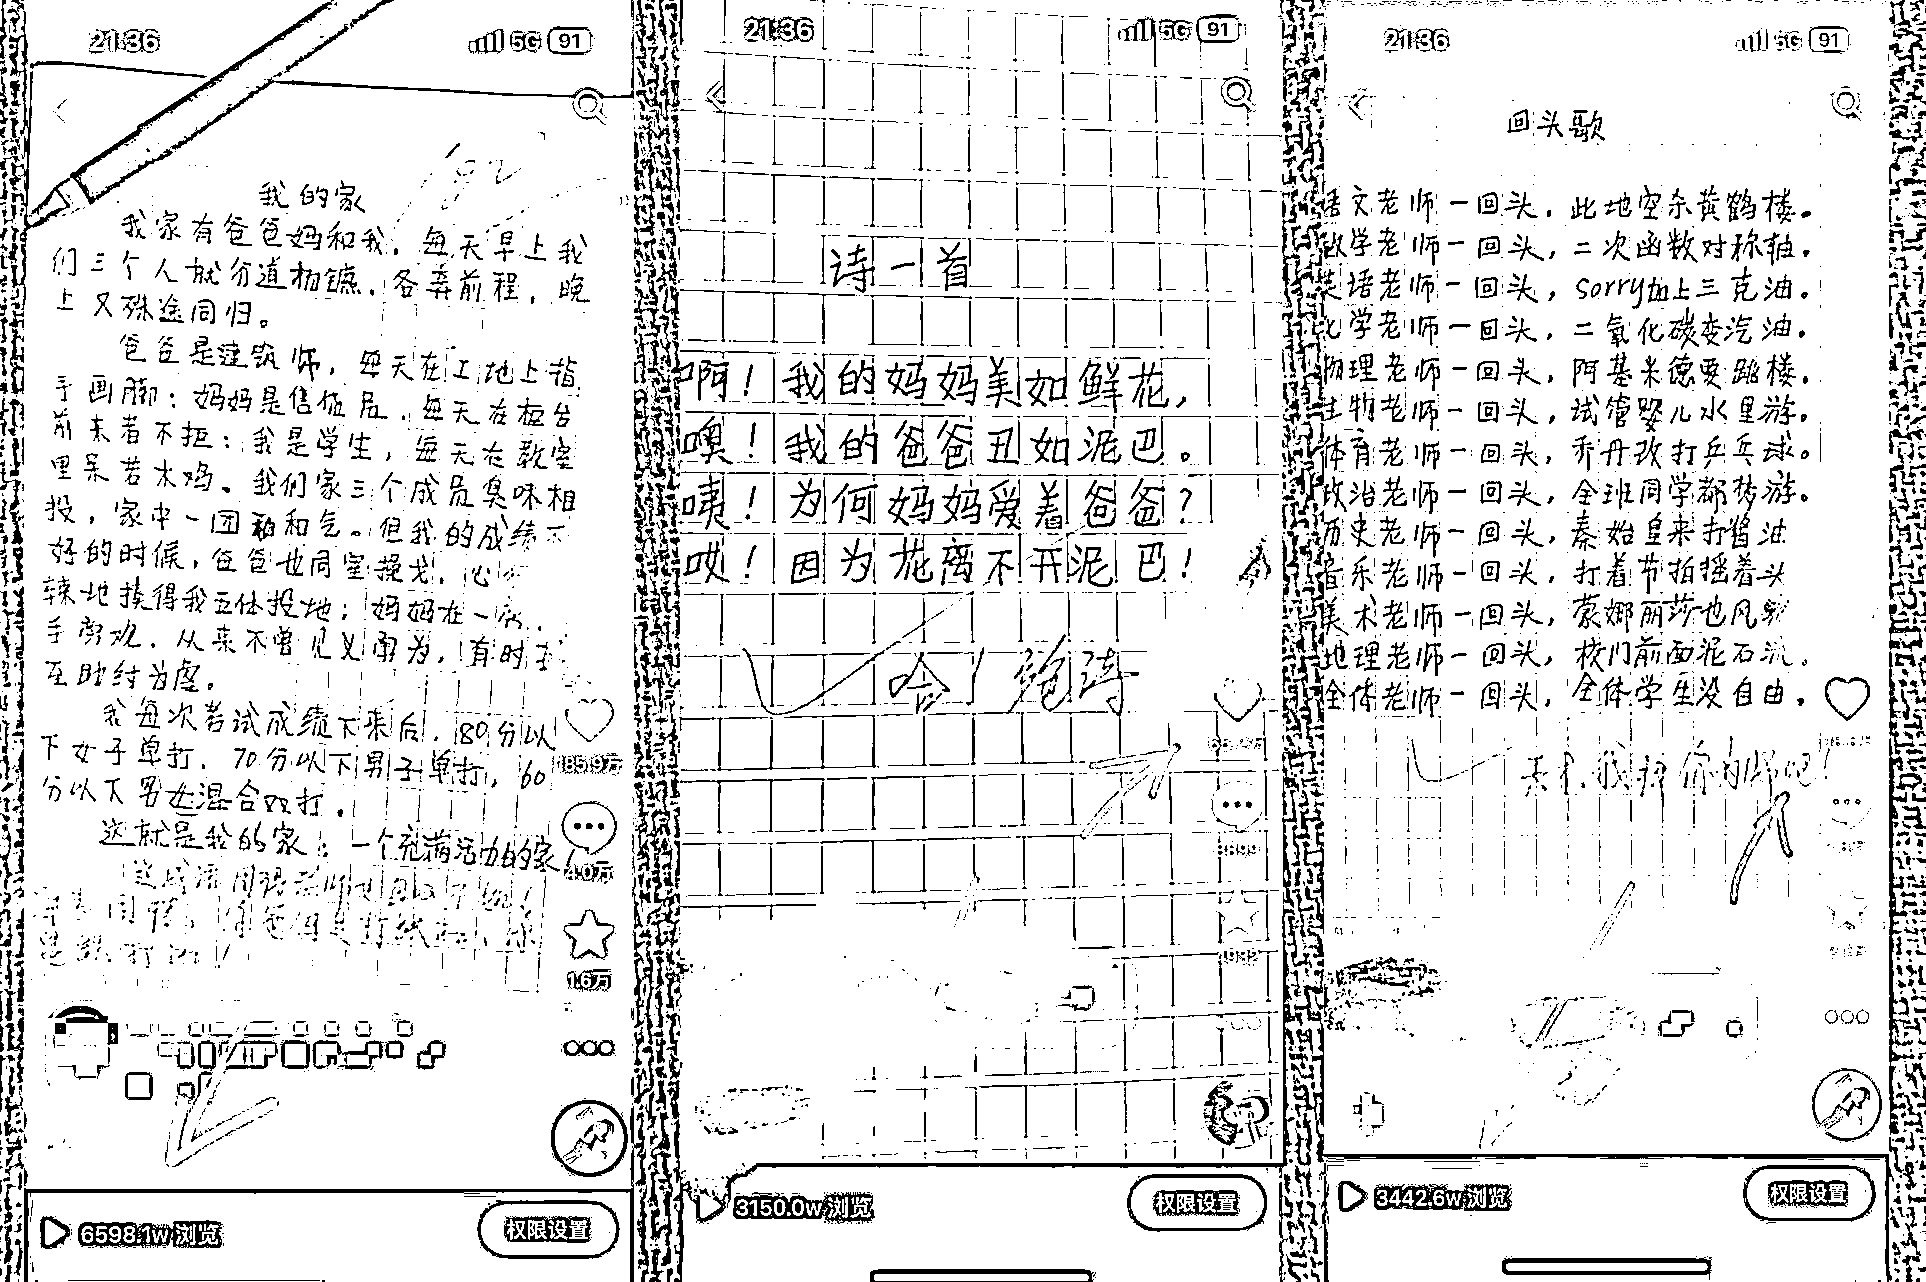 21:36
5G 91
我的家
我家有爸爸妈和我，每天早上我
们三个人就分道扬镳，各奔前程，晚
上又殊途同归。
爸爸是建筑师，每天在工地上指
手画脚；妈妈是售货员，每天在柜台
前来者不拒；我是学生，每天在教室
里呆若木鸡。我们家三个成员臭味相
投，家中一团和气。但我的成绩不
好的时候，爸爸也同室操戈，心
辣地揍得我五体投地；妈妈在一
手旁观，从来不曾见义勇为，有时
互助纣为虐。
我每次考试成绩下来后，80分以
下女子单打，70分以下男子单打，60
分以下男女混合双打。
这就是我的家：一个充满活力的家
185.9万
4.0万
1.6万
6598.1w浏览
权限设置
21:36
5G 91
诗一首
啊！我的妈妈美如鲜花，
噢！我的爸爸丑如泥巴。
咦！为何妈妈爱着爸爸？
哎！因为花离不开泥巴！
哈！绝诗
3150.0w浏览
权限设置
21:36
5G 91
回头歌
语文老师一回头，此地空余黄鹤楼。
数学老师一回头，二次函数对称轴。
英语老师一回头，sorry加上三克油。
化学老师一回头，二氧化碳变汽油。
物理老师一回头，阿基米德要跳楼。
生物老师一回头，试管婴儿水里游。
体育老师一回头，乔丹改打乒乓球。
政治老师一回头，全班同学都梦游。
历史老师一回头，秦始皇来打酱油
音乐老师一回头，打着节拍摇着头
美术老师一回头，蒙娜丽莎也风
地理老师一回头，校门前面泥石流。
全体老师一回头，全体学生没自由。
我拜你为师吧！
3442.6w浏览
权限设置